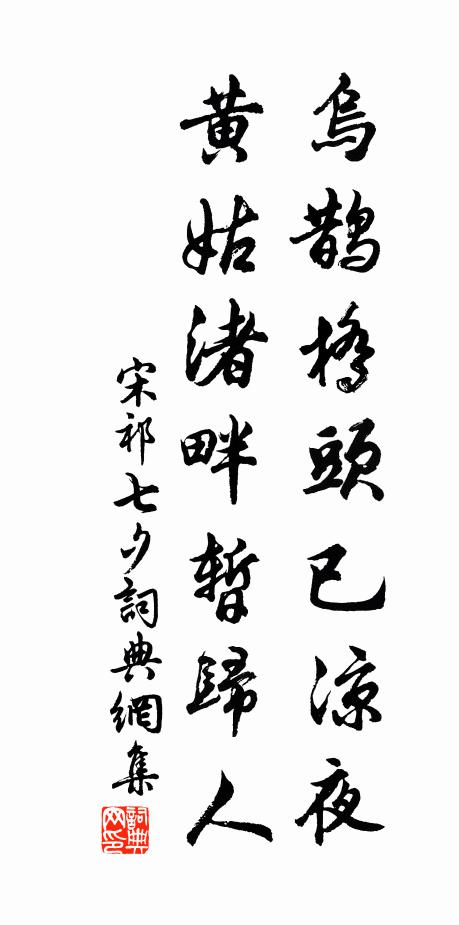 烏鵲橋頭已涼夜
黃姑渚畔暫歸人
宋祁七夕詞典網集
詞典網印